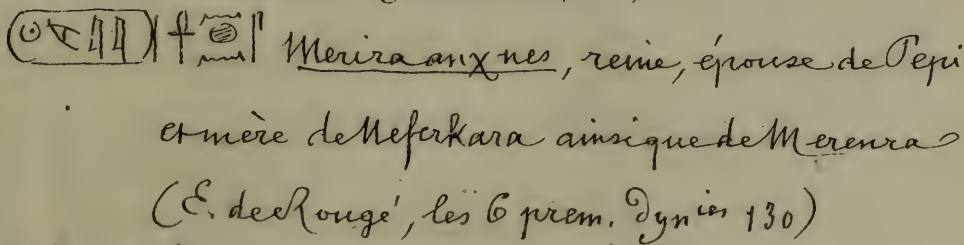 (𓇳𓌸𓇌𓇌)𓋹𓈖𓐍𓈖𓋴 Merira anχ nes, reine, épouse de Pepi
et mère de Neferkara ainsi que de Merenra
(E. de Rougé, les 6 prem. Dyn ies 130)